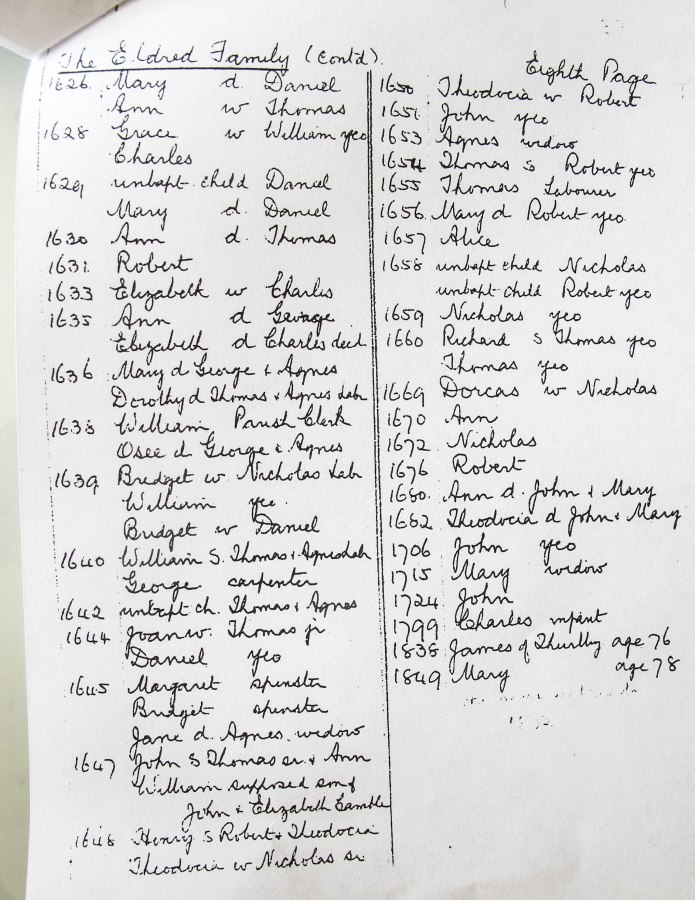 The Eldred Family (Contd).
Eighth Page
1626 Mary d. Daniel
Ann w Thomas
1628 Grace w William yeo
Charles
1629 unbapt child Daniel
Mary d. Daniel
1630 Ann d. Thomas
1631 Robert
1633 Elizabeth w Charles
1635 Ann d George
Elizabeth d Charles decd
1636 Mary d George & Agnes
Dorothy d Thomas & Agnes Lab
1638 William Parish Clerk
Osee d George & Agnes
1639 Bridget w. Nicholas Lab
William yeo.
Bridget w Daniel
1640 William S. Thomas & Agnes Lab
George carpenter
1642 unbapt ch. Thomas & Agnes
1644 Joan w. Thomas jr
Daniel yeo
1645 Margaret spinster
Bridget spinster
Jane d. Agnes. widow
1647 John S Thomas sr. & Ann
William supposed son of
John & Elizabeth Gamble
1648 Henry S Robert & Theodocia
Theodocia w Nicholas sr
1650 Theodocia w Robert
1651 John yeo
1653 Agnes widow
1654 Thomas s Robert yeo
1655 Thomas Labourer
1656 Mary d Robert yeo.
1657 Alice
1658 unbapt child Nicholas
unbapt child Robert yeo
1659 Nicholas yeo
1660 Richard s Thomas yeo
Thomas yeo
1669 Dorcas w Nicholas
1670 Ann
1672 Nicholas
1676 Robert
1680. Ann d. John & Mary
1682 Theodocia d John & Mary
1706 John yeo
1715 Mary widow
1724 John
1799 Charles infant
1838 James of Thurlby age 76
1849 Mary age 78